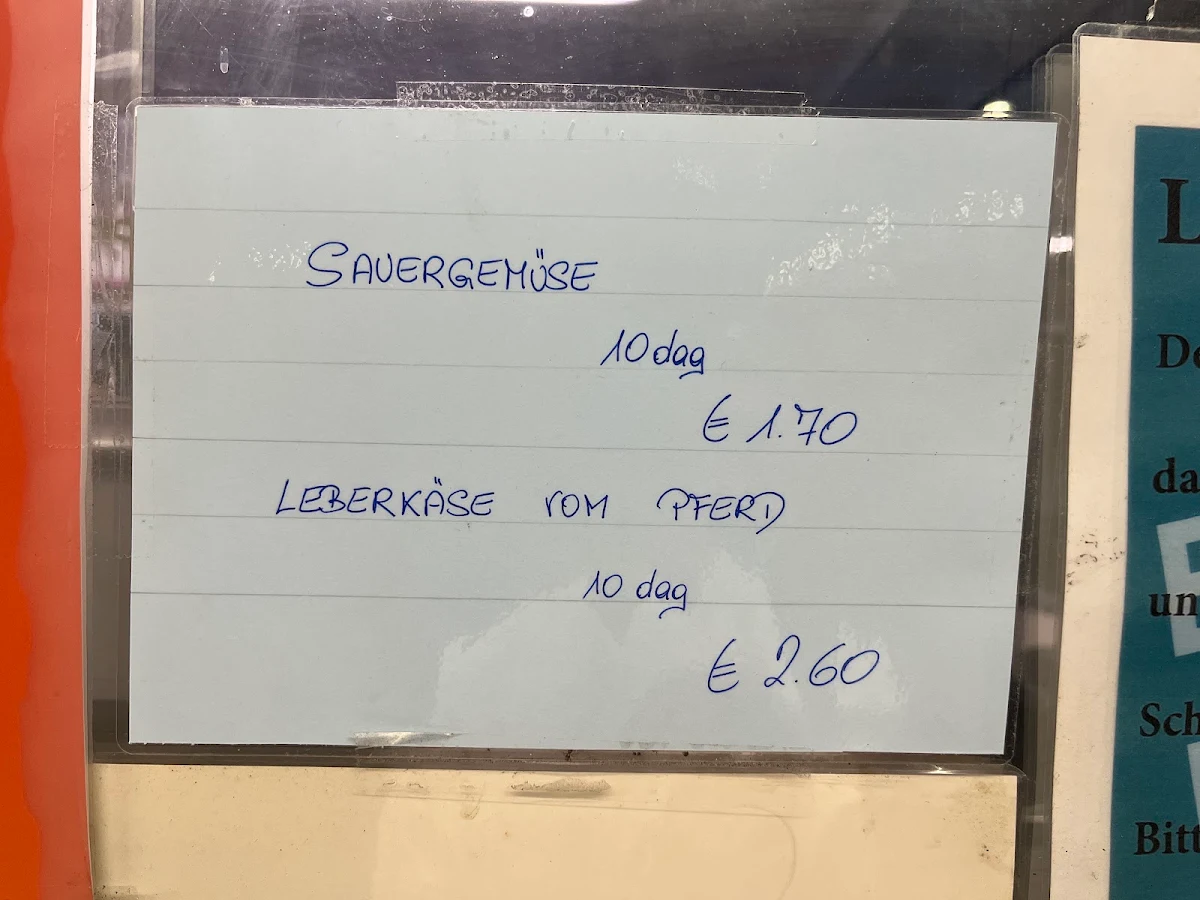 SAUERGEMÜSE
10 dag
€ 1.70
LEBERKÄSE VOM PFERD
10 dag
€ 2.60
da
un
Sch
Bitt